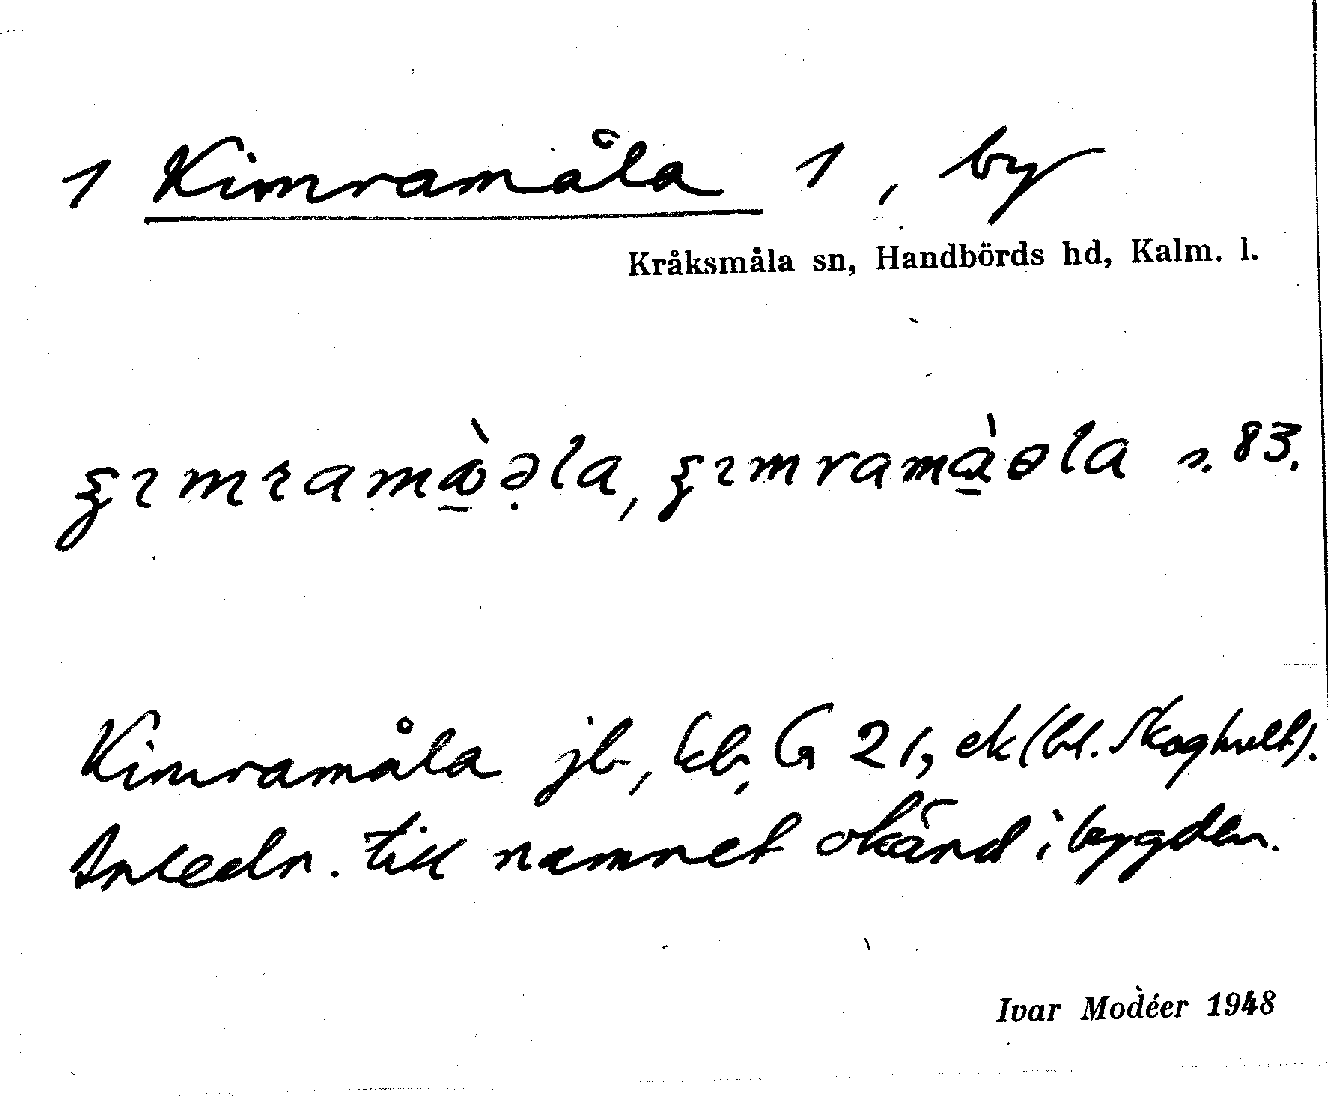 1 Kimramåla 1, by
Kråksmåla sn, Handbörds hd, Kalm. l.
s. 83.
Kimramåla jb, kb, G 21, ek (bl. Skoghult).
Anledn. till namnet okänd i bygden.
Ivar Modéer 1948